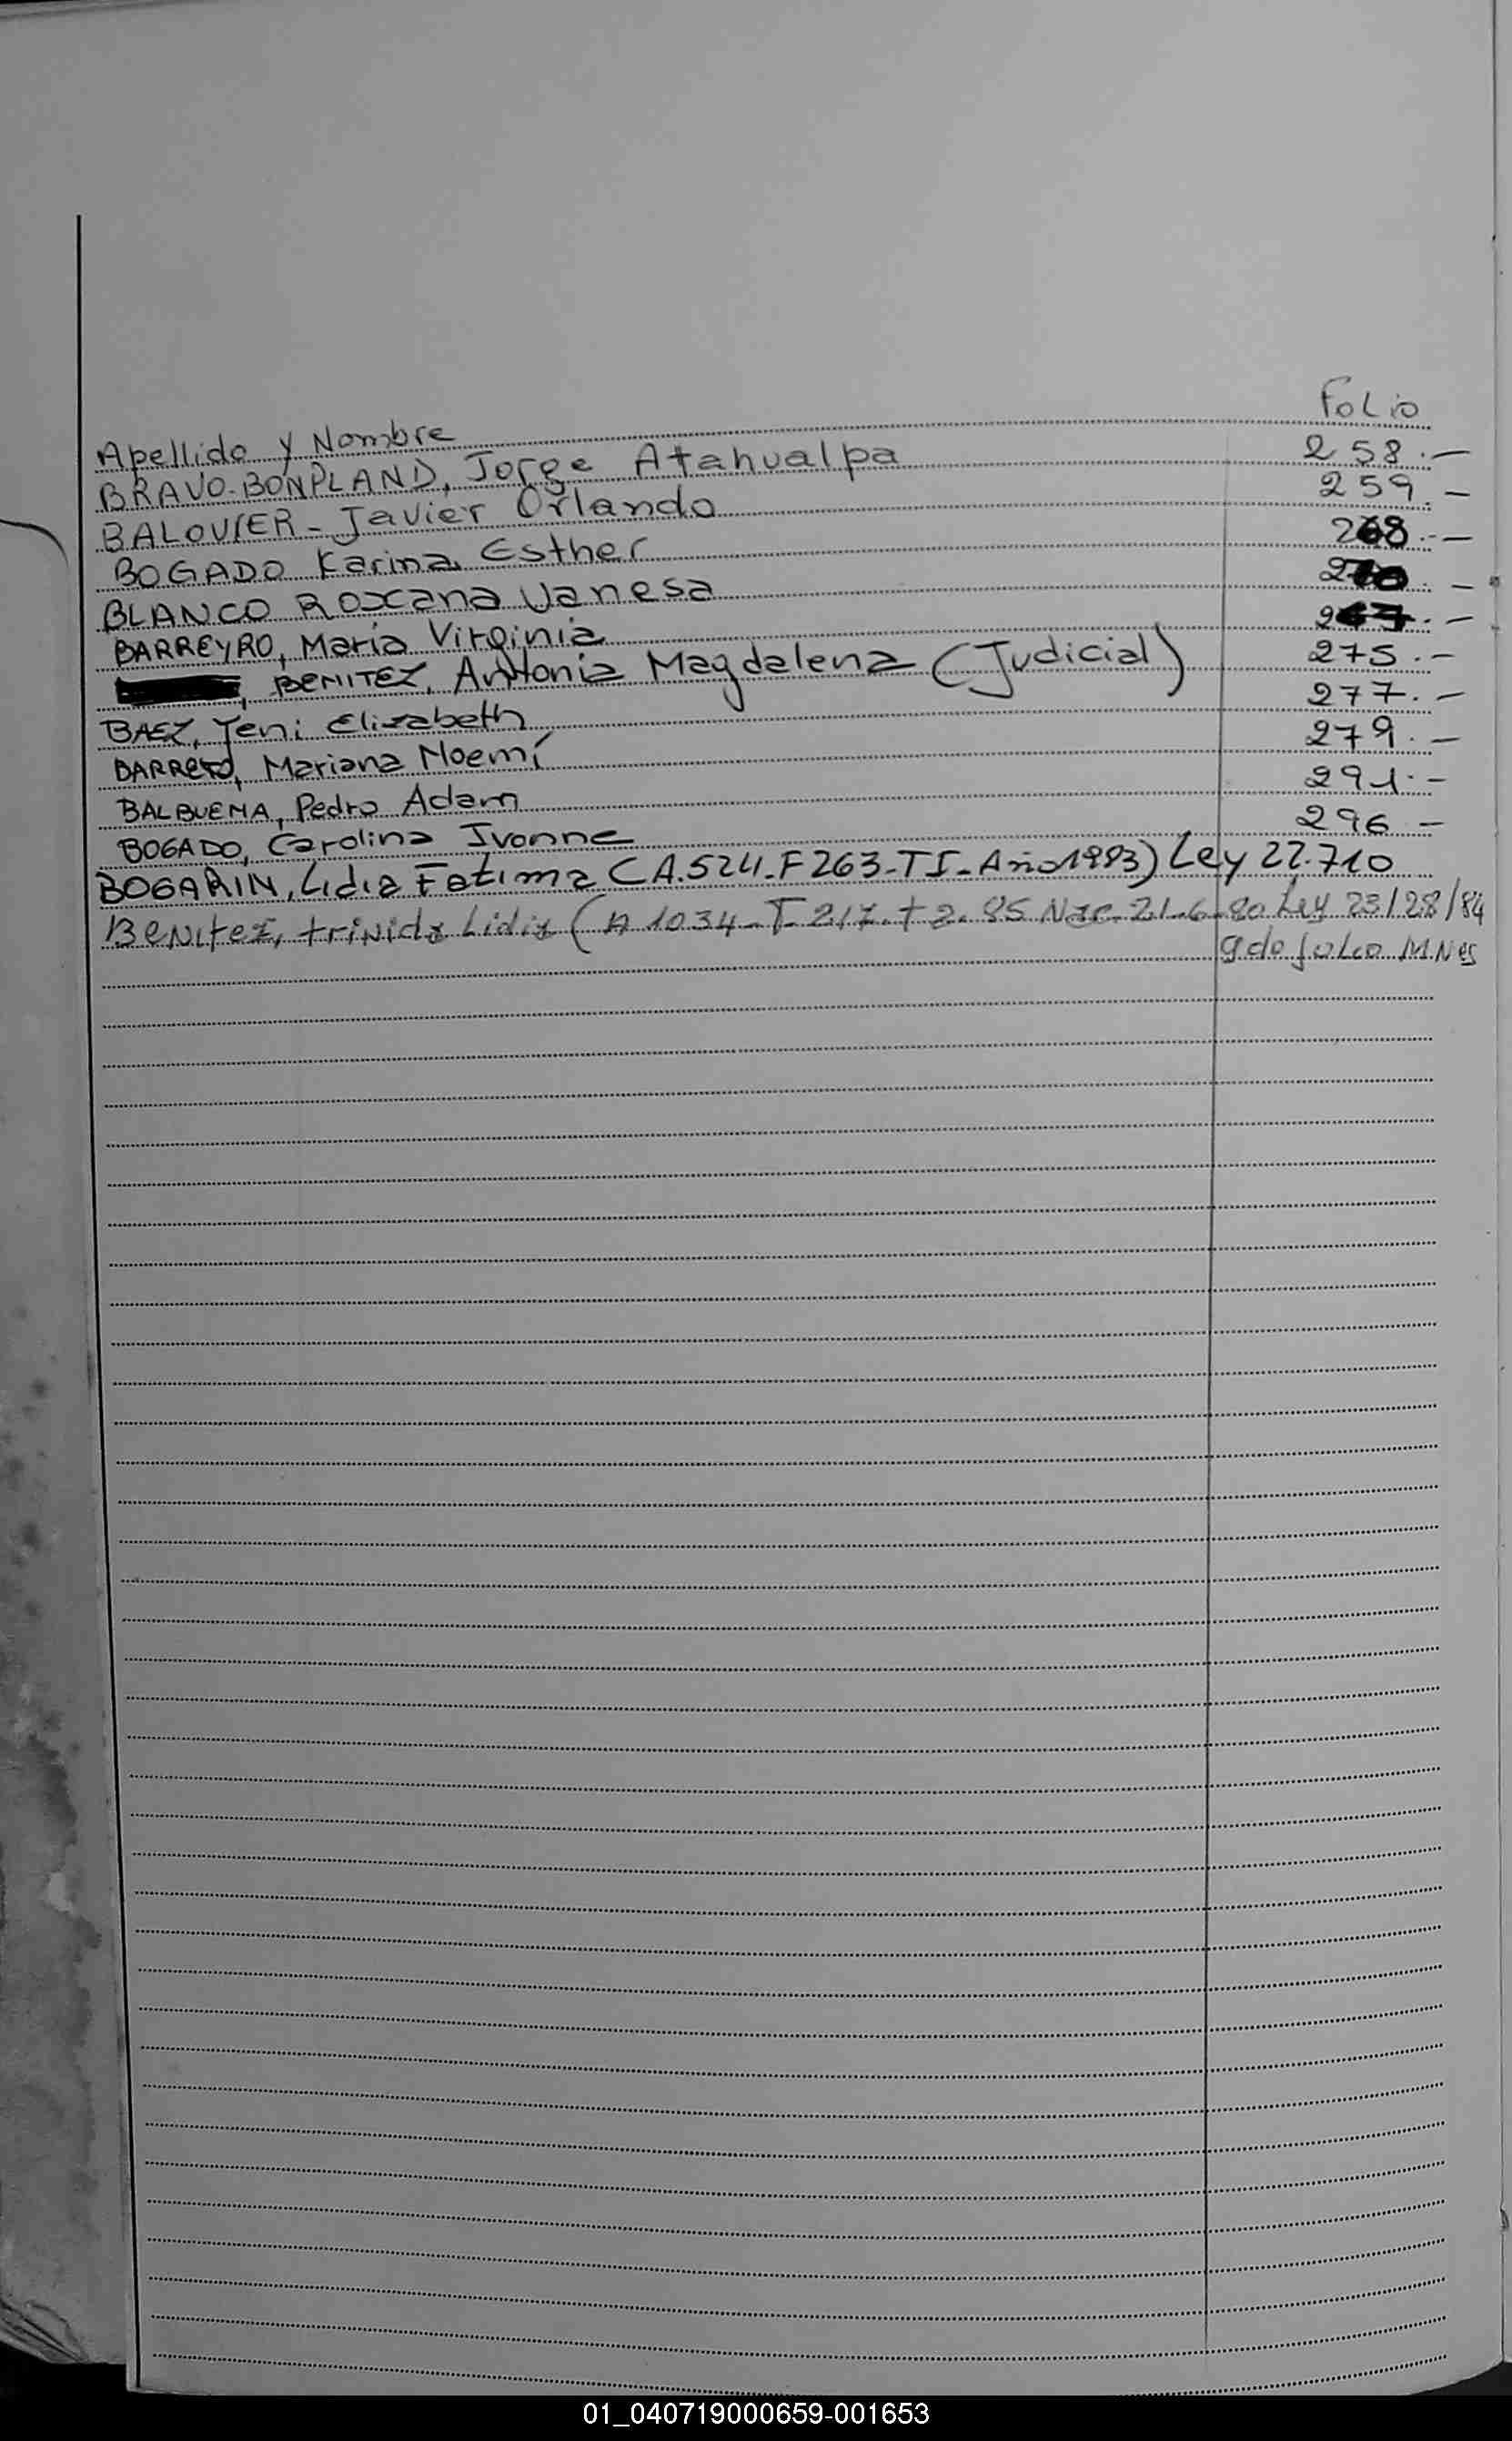 Folio
Apellido y Nombre
BRAVO-BONPLAND, Jorge Atahualpa 258.-
BALOVIER - Javier Orlando 259.-
BOGADO Karina Esther 268.-
BLANCO Roxana Vanesa 270.-
BARREYRO, María Virginia
BENITEZ, Antonia Magdalena (Judicial) 275.-
BAEZ, Yeni Elizabeth 277.-
BARRETO, Mariana Noemí 279.-
BALBUENA, Pedro Adam 291.-
BOGADO, Carolina Ivonne 296 -
BOGARIN, Lidia Fatima (A.524-F263-TI-Año1983) Ley 22.710
Benitez, trinida Lidia (A 1034-T-217.+2.85 Nac-21-6-80 Ley 23/28/84
01_040719000659-001653